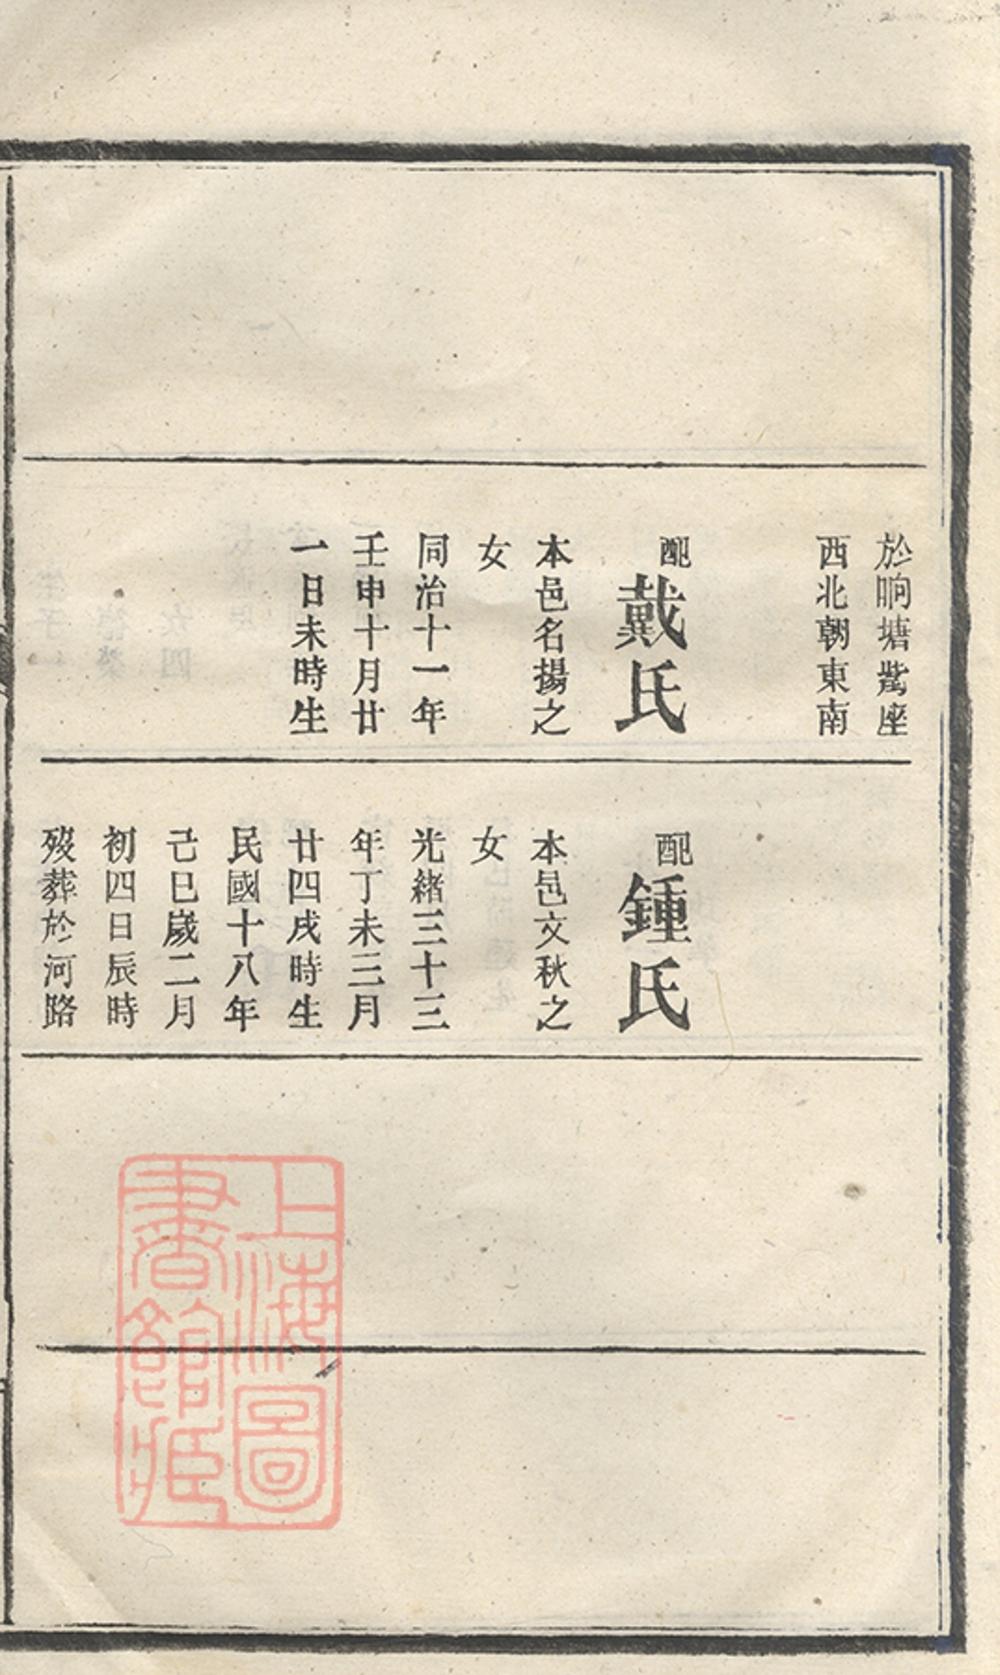 於晌塘嵅座
西北朝東南
配戴氏
本邑名揚之
女
同治十一年
壬申十月廿
一日未時生
配鍾氏
本邑文秋之
女
光緒三十三
年丁未三月
廿四戌時生
民國十八年
己巳歲二月
初四日辰時
歿葬於河路
上海圖
書館藏